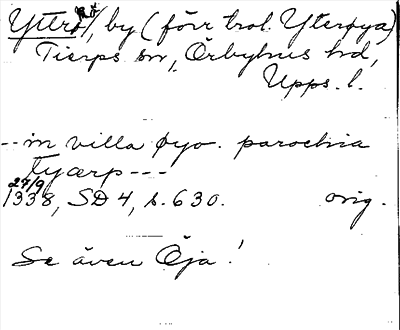 Yttrö, by (förr trol. Yterøya)
Tierps sn, Örbyhus hd,
Upps. l.
-- in villa øyo. parochia
tyærp ---
27/9
1338, SD 4, s. 630. orig.
Se även Öja!